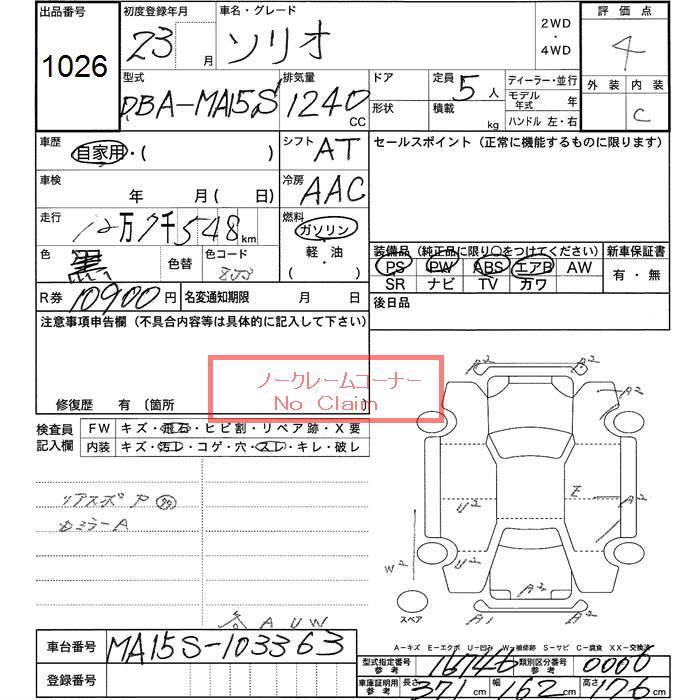 出品番号 初度登録年月 車名・グレード 2WD・4WD 評価点
1026 23 月 ソリオ 4
型式 排気量 ドア 定員 5 人 ディーラー・並行 外装 内装
DBA-MA15S 1240 CC 形状 積載 kg モデル年式 年 C
ハンドル 左・右
車歴 自家用・( ) シフト AT セールスポイント（正常に機能するものに限ります）
車検 年 月( 日) 冷房 AAC
走行 12万7千548 km 燃料 ガソリン
軽・油
( )
色 黒 色替 色コード
装備品（純正品に限り〇をつけてください） 新車保証書
PS PW ABS エアB AW 有・無
SR ナビ TV カワ
R券 10900円 名変通知期限 月 日 後日品
注意事項申告欄（不具合内容等は具体的に記入して下さい）
ノークレームコーナー
No Claim
修復歴 有〔箇所
検査員記入欄 FW キズ・飛石・ヒビ割・リペア跡・X要
内装 キズ・汚レ・コゲ・穴・スレ・キレ・破レ
リアスポア
カミラーA
A U W
A2 A2
A2
E A2
U2
W P
U2 A2
A2
スペア A1 A2
A-キズ E-エクボ U-凹み W-補修跡 S-サビ C-腐食 XX-交換済
車台番号 MA15S-103363
型式指定番号参考 16746 類別区分番号参考 0006
登録番号 車庫証明用参考 長さ 371 cm 幅 162 cm 高さ 176 cm